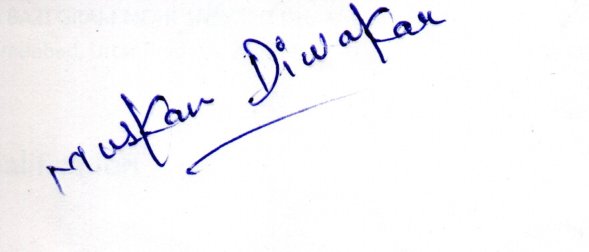 Muskan Diwakar